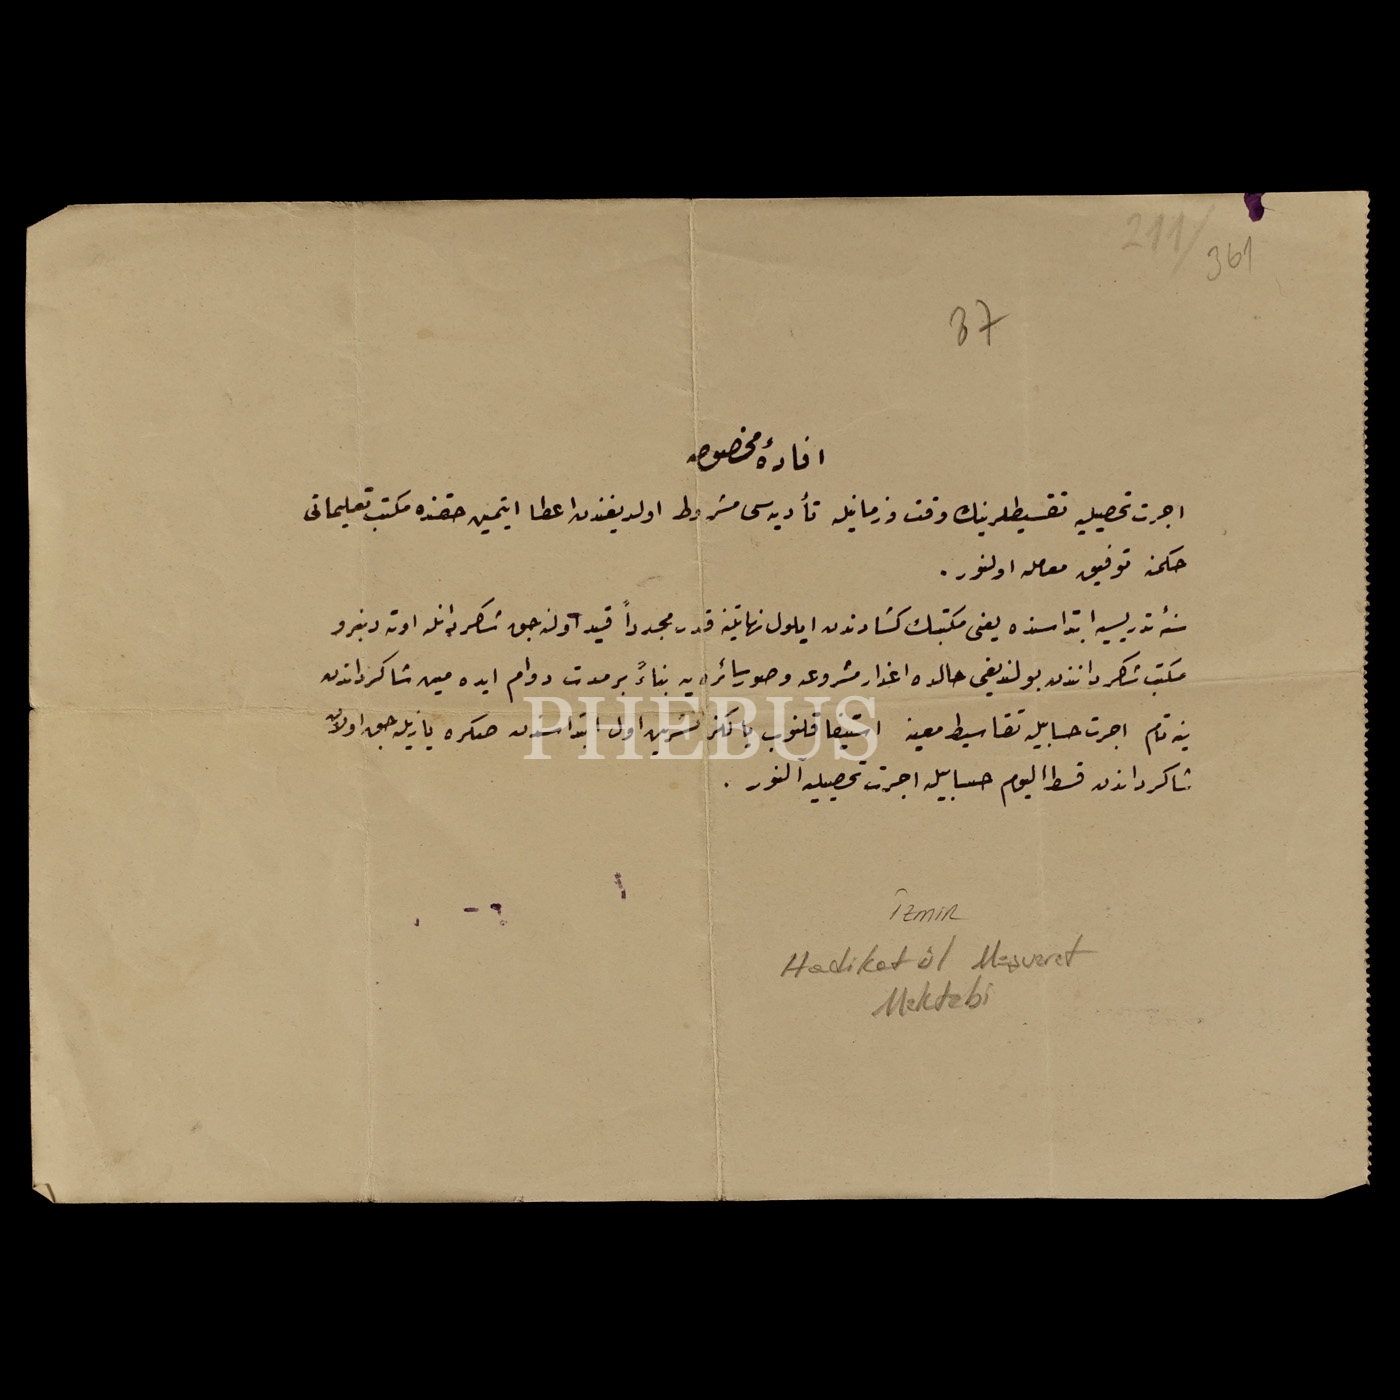 211/
361
87
افادهٔ مخصوصه
اجرت تحصیلیه تقسیطلرینك وقت و زمانیله تأدیه‌سی مشروط اولدیغندن اعطا ایتمین حقنده مكتب تعلیماتی
حكمنه توفیق معامله اولنور .
سنهٔ تدریسیه ابتداسنده یعنی مكتبك كشادندن ایلول نهایتنه قدر مجدداً قید اولنه‌جق شاكردانله اوته دنبرو
مكتب شاكردانندن بولندیغی حالده اعذار مشروعه و صور سائره‌یه بناءً بر مدت دوام ایده‌مین شاكرداندن
ینه تام اجرت حسابیله تقاسیط معینه استیفا قلنوب یالكز تشرین اول ابتداسندن صكره یازیله‌جق اولان
شاكرداندن قسط الیوم حسابیله اجرت تحصیلیه النور .
PHEBUS
İzmir
Hadikat ül Meşveret
Mektebi